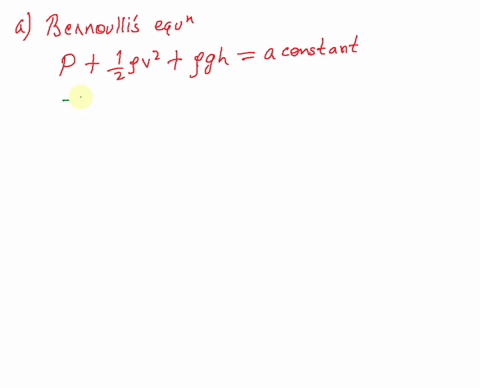 a) Bernoulli's equⁿ
P + 1/2 ρv² + ρgh = a constant